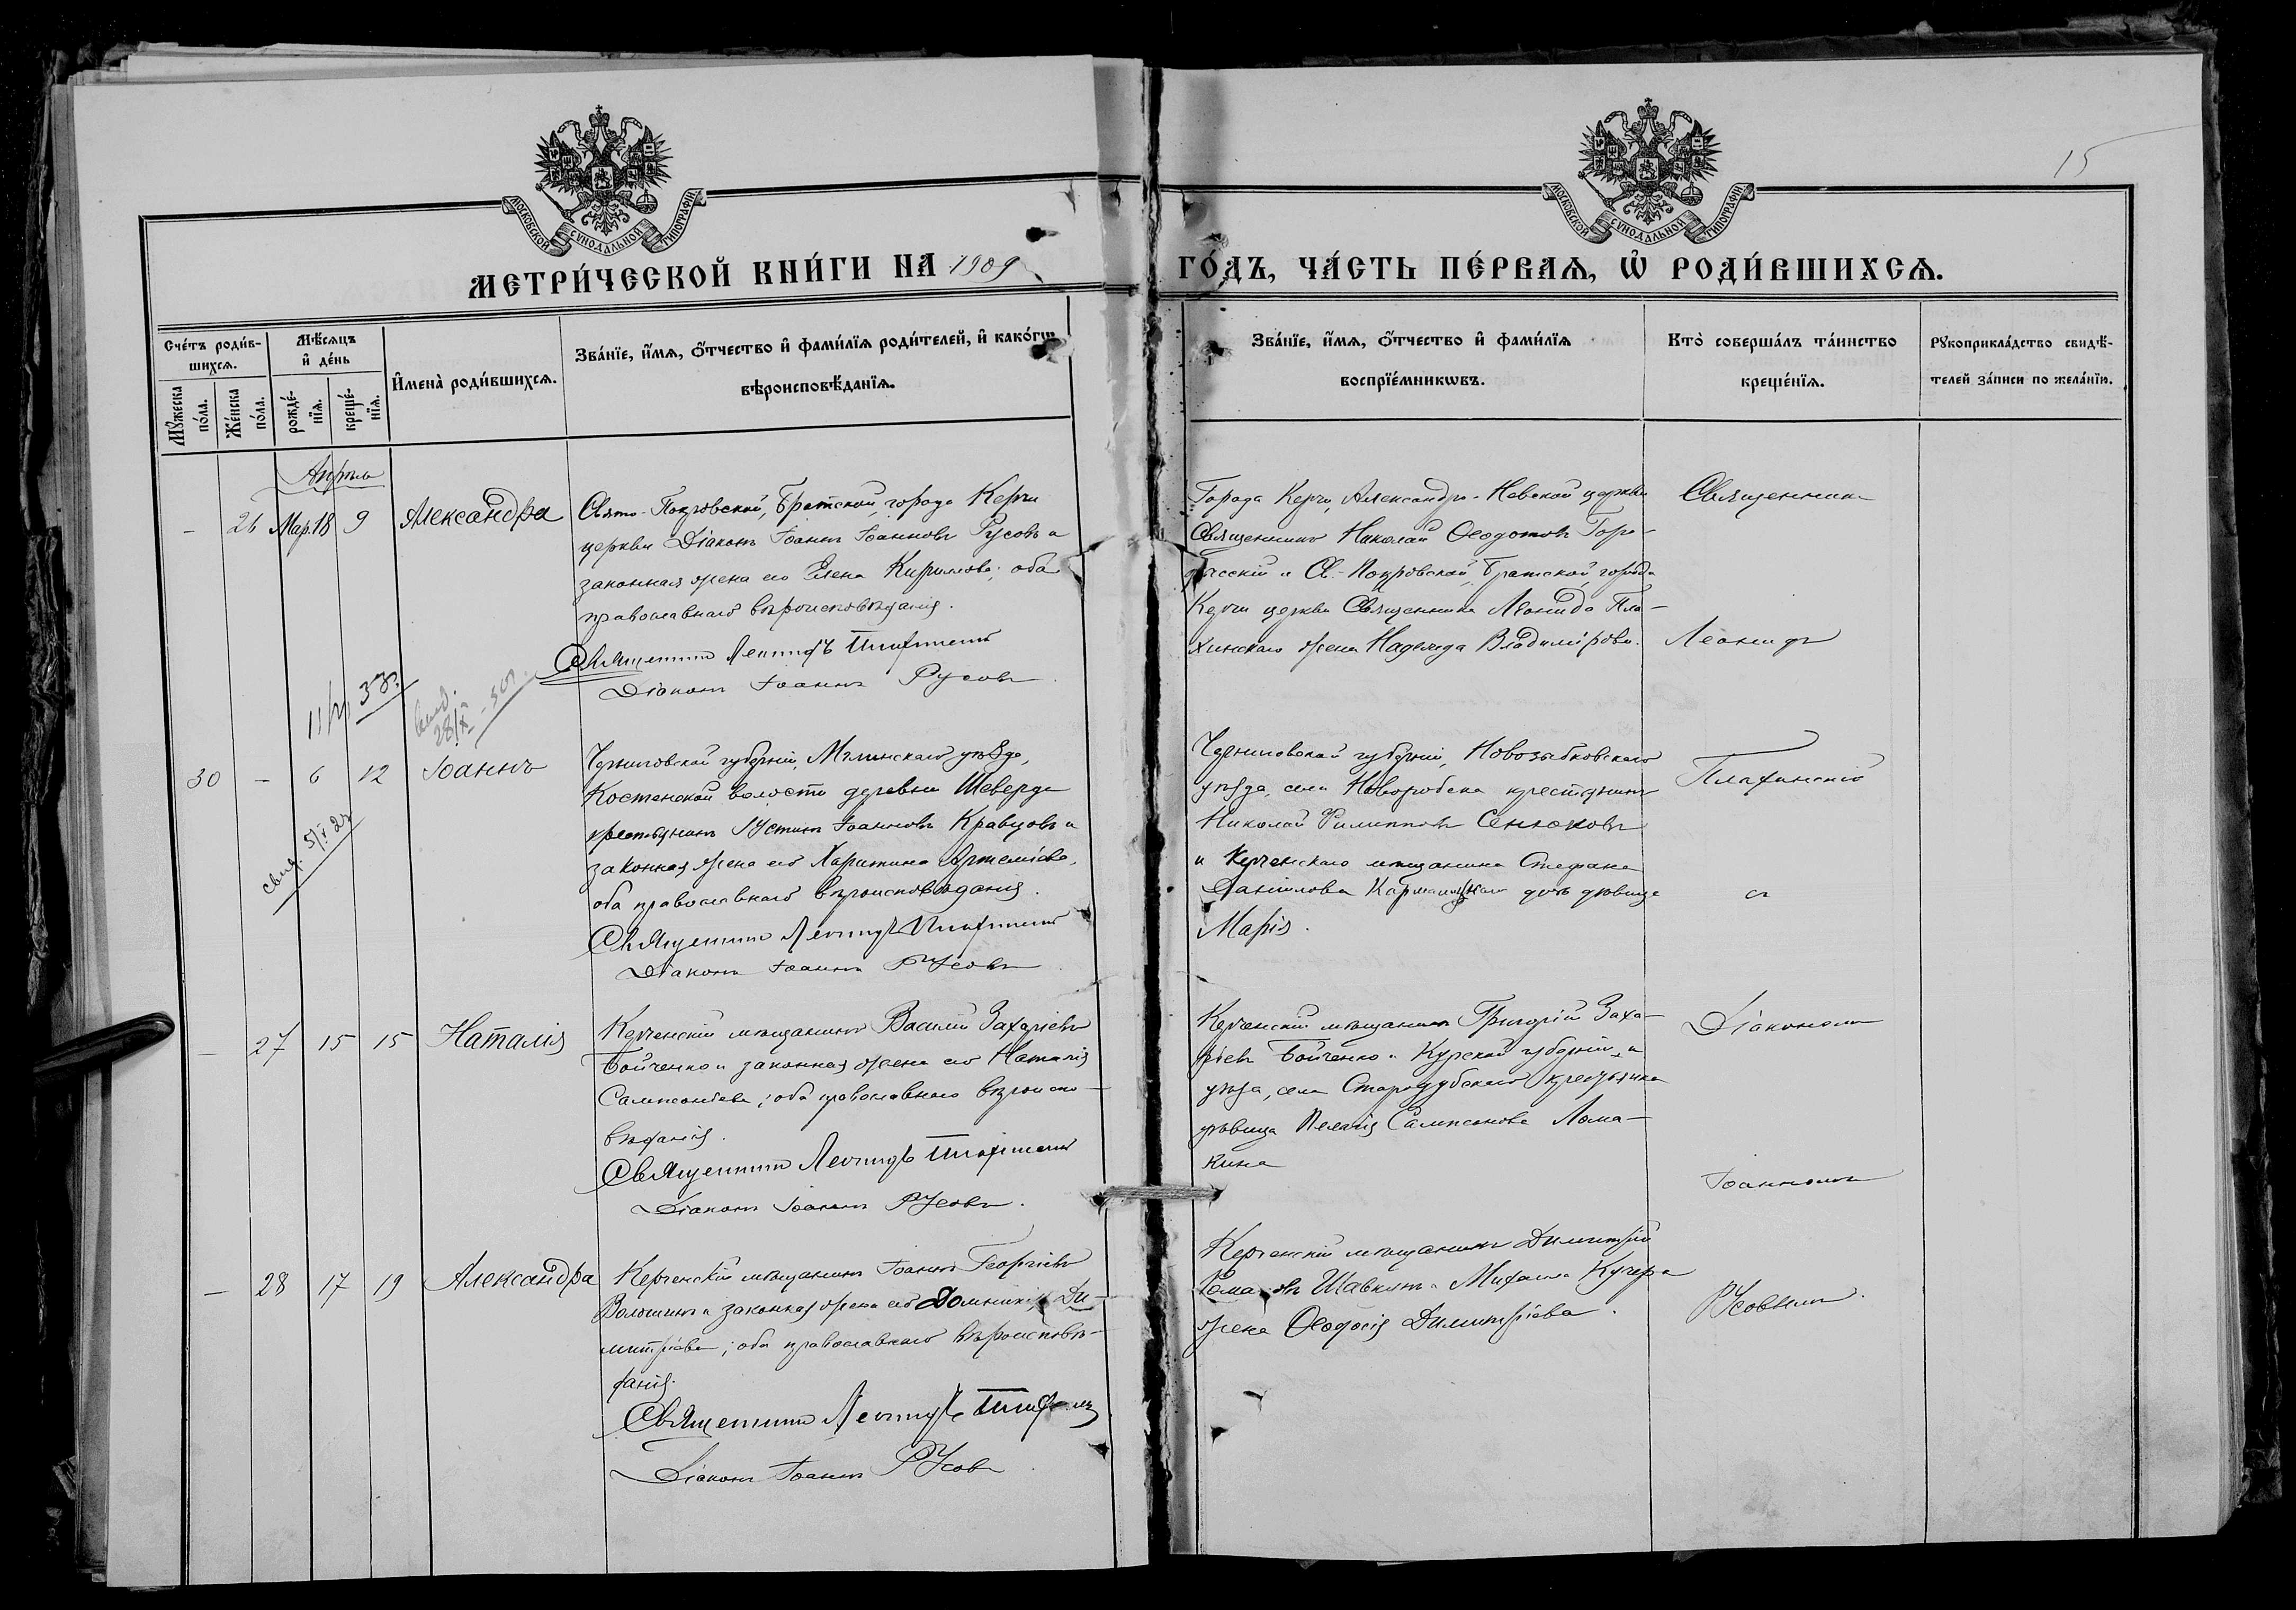 15
МОСКОВСКОЙ СѴНОДАЛЬНОЙ ТИПОГРАФІИ
МОСКОВСКОЙ СѴНОДАЛЬНОЙ ТИПОГРАФІИ
МЕТРИ́ЧЕСКОЙ КНИ́ГИ НА 1909
ГО́ДЪ, ЧА́СТЬ ПЕ́РВАѦ, Ѡ҆ РОДИ́ВШИХСѦ.
Сче́тъ роди́в-
шихсѧ.
Мꙋ́жеска по́ла.
Же́нска по́ла.
Мѣ́сѧцъ
и҆ де́нь
рожде́-
нїѧ.
креще́-
нїѧ.
И҆мена̀ роди́вшихсѧ.
Зва́нїе, и҆́мѧ, ѻ҆́тчество и҆ фами́лїѧ роди́телей, и҆ како́гѡ
вѣроисповѣ́данїѧ.
Зва́нїе, и҆́мѧ, ѻ҆́тчество и҆ фами́лїѧ
воспрїе́мникѡвъ.
Кто̀ соверша́лъ та́инство
креще́нїѧ.
Рꙋкоприкла́дство свидѣ́-
телей за́писи по жела́нїи.
Апрѣль
- 26 Мар.18 9 Александра
Свято-Покровской, Братской, города Керчи
церкви Діаконъ Іоаннъ Іоанновъ Русовъ и
законная жена его Елена Кириллова; оба
православнаго вѣроисповѣданія.
Священникъ Леонидъ Плахинскій
Діаконъ Іоаннъ Русовъ.
Города Керчи, Александро-Невской церкви
Священникъ Николай Ѳеодотовъ Горо-
и Св.-Покровской, Братской, города
Керчи церкви Священника Леонида Пла-
хинскаго жена Надежда Владимірова.
Священникъ
Леонидъ
30 - 6 12 Іоаннъ
свид. 5/X 27
28/X - 501
Черниговской губерніи, Мглинскаго уѣзда,
Костенской волости деревни Шеверды
крестьянинъ Іустинъ Іоанновъ Кравцовъ и
законная жена его Харитина Артеміева,
оба православнаго вѣроисповѣданія.
Священникъ Леонидъ Плахинскій
Діаконъ Іоаннъ Русовъ
Черниговской губерніи, Новозыбковскаго
уѣзда, села крестьянинъ
Николай Филипповъ Сенюковъ
и Керченскаго мѣщанина Стефана
Даніилова дочь дѣвица
Марія.
Плахинскій
съ
- 27 15 15 Наталія
Керченскій мѣщанинъ Василій Захаріевъ
Бойченко и законная жена его Наталія
Сампсоніева; оба православнаго вѣроиспо-
вѣданія.
Священникъ Леонидъ Плахинскій
Діаконъ Іоаннъ Русовъ.
Керченскій мѣщанинъ Григорій Заха-
ріевъ Бойченко и Курской губерніи и
уѣзда, села Стародубскаго крестьянка
дѣвица Пелагія Сампсонова Лома-
кина
Діакономъ
Іоанномъ
- 28 17 19 Александра
Керченскій мѣщанинъ Іоаннъ Георгіевъ
Волошинъ и законная жена его Домникія Ди-
митріева; оба православнаго вѣроисповѣ-
данія.
Священникъ Леонидъ
Діаконъ Іоаннъ Русовъ
Керченскій мѣщанинъ Димитрій
и Михаила Кучера
жена Ѳеодосія Димитріева.
Русовымъ.